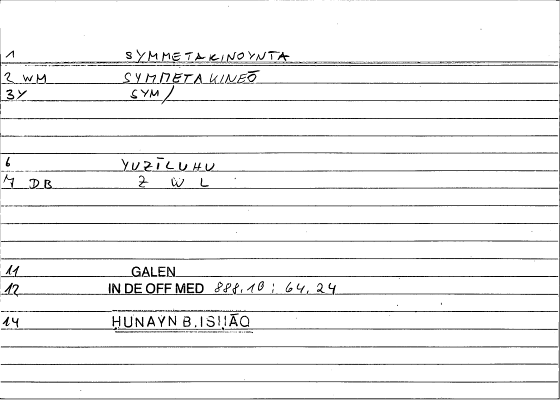 1 SYMMETAKINOYNTA
2 WM SYMMETAKINEŌ
3Y SYM/
6 YUZĪLUHU
7 DB Z W L
11 GALEN
12 IN DE OFF MED 888.10 : 64.24
14 ḤUNAYN B.ISḤĀQ